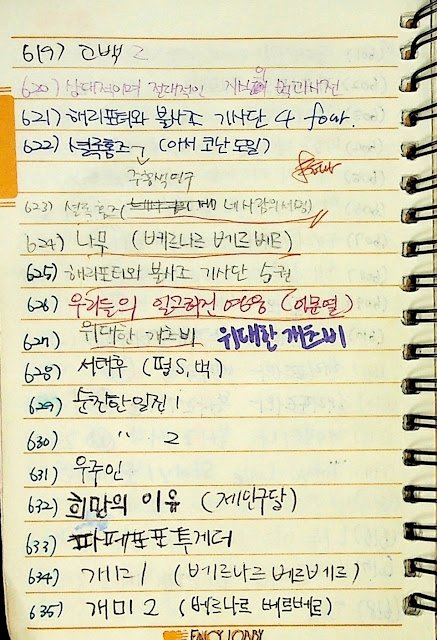 619) 고백 2
620) 상대적이며 절대적인 지식의 백과사전
621) 해리포터와 불사조 기사단 4 four.
622) 셜록홈즈 (아서 코난 도일)
주홍색 연구
four
623) 셜록홈즈 ( 네 사람의 서명)
624) 나무 (베르나르 베르베르)
625) 해리포터와 불사조 기사단 5권
626) 우리들의 일그러진 영웅 (이문열)
627) 위대한 개츠비 위대한 개츠비
628) 서태후 (펄 S. 벅)
629) 순진한 일진 1
630) " 2
631) 우주인
632) 희망의 이유 (제인구달)
633) 파페포포 투게더
634) 개미 1 (베르나르 베르베르)
635) 개미 2 (베르나르 베르베르)